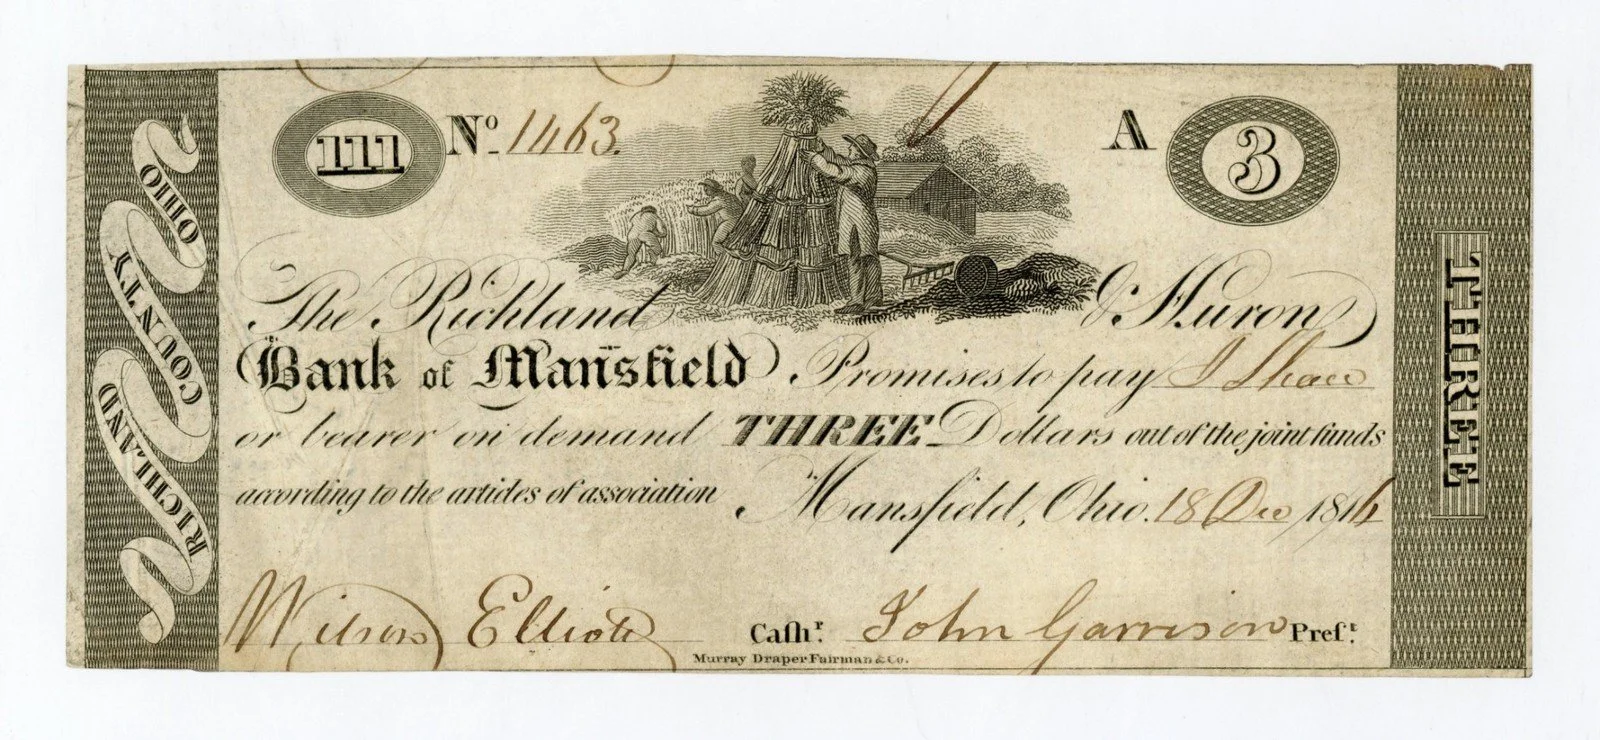 RICHLAND COUNTY OHIO
111 No. 1463. A 3
The Richland & Huron
Bank of Mansfield Promises to pay I Shaw
or bearer on demand THREE Dollars out of the joint funds
according to the articles of association Mansfield, Ohio. 18 Dec 1816
Wilson Elliott Cashr. John Garrison Prest.
Murray Draper Fairman & Co.
THREE